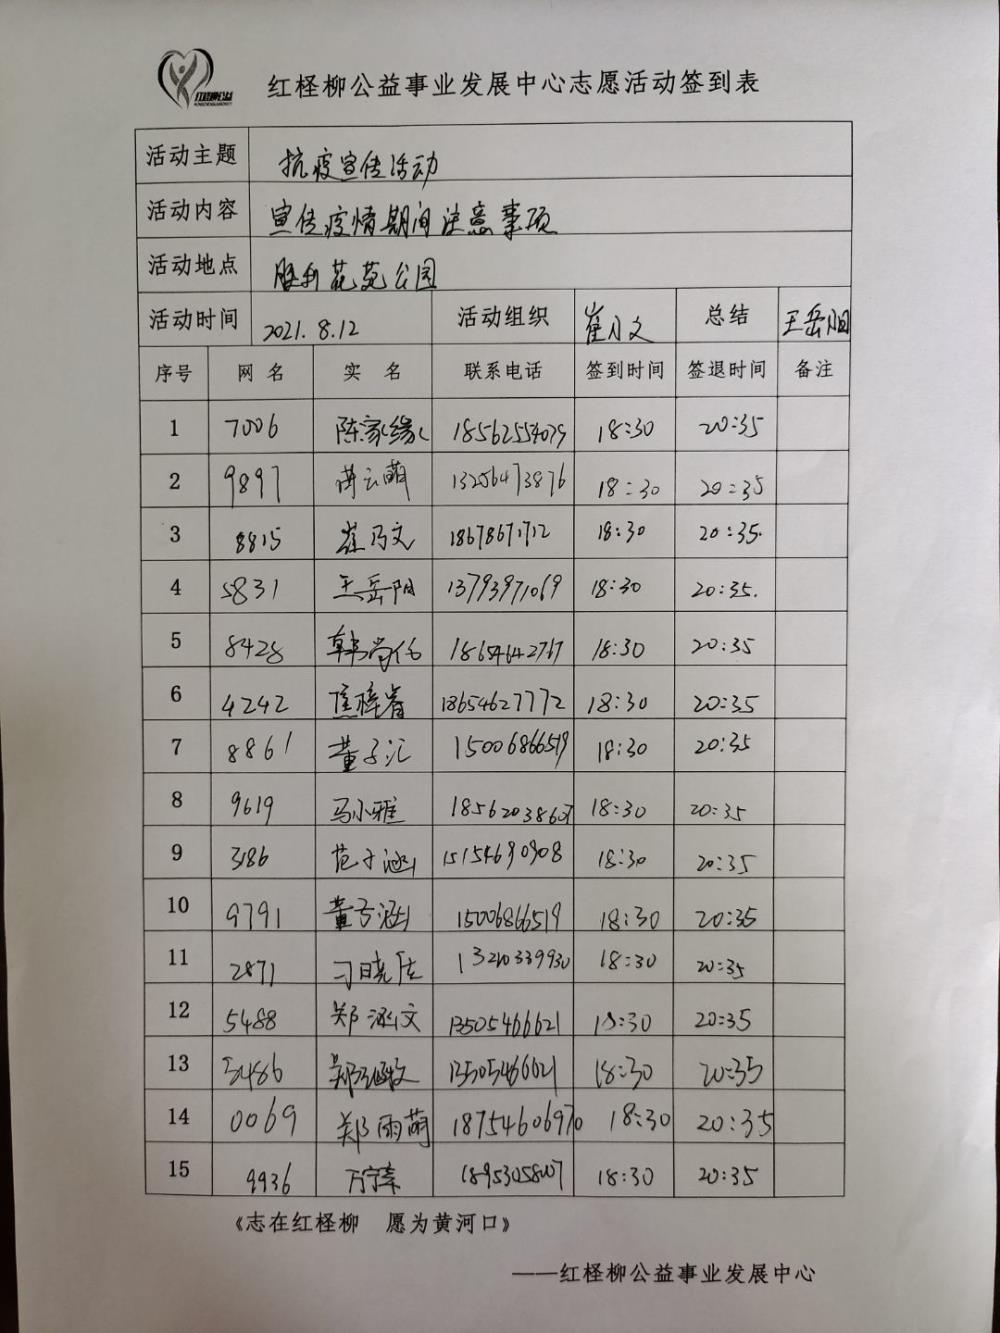 红柽柳公益
红柽柳公益事业发展中心志愿活动签到表
活动主题 抗疫宣传活动
活动内容 宣传疫情期间注意事项
活动地点 胜利花苑公园
活动时间 2021.8.12 活动组织 崔乃文 总结 王岳阳
序号 网名 实名 联系电话 签到时间 签退时间 备注
1 7006 陈家缘 18562554079 18:30 20:35
2 9897 蒋云萌 13256473876 18:30 20:35
3 8815 崔乃文 18678671712 18:30 20:35.
4 5831 王岳阳 13793971069 18:30 20:35.
5 8428 韩尚佑 18654642767 18:30 20:35
6 4242 焦梓睿 18654627772 18:30 20:35
7 8861 董子汇 15006866519 18:30 20:35
8 9619 马小雅 18562038607 18:30 20:35
9 3186 范子涵 15154690908 18:30 20:35
10 9791 董子涵 15006866519 18:30 20:35
11 2871 刁晓 13210339930 18:30 20:35
12 5488 郑涵文 13505466621 18:30 20:35
13 5486 郑涵牧 13505466621 18:30 20:35
14 0069 郑雨萌 18754606970 18:30 20:35
15 9936 万宇 18953058007 18:30 20:35
《志在红柽柳 愿为黄河口》
——红柽柳公益事业发展中心